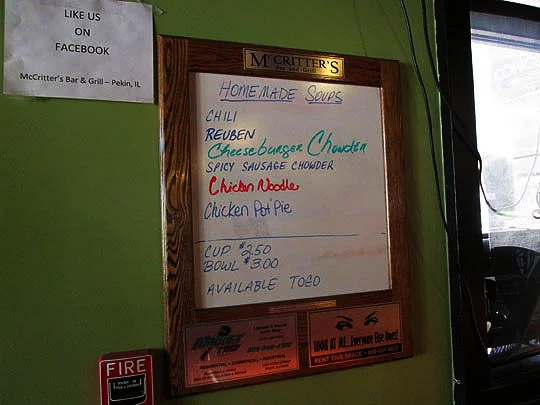 LIKE US
ON
FACEBOOK
McCritter's Bar & Grill – Pekin, IL
McCRITTER'S
Bar and Grill
HOMEMADE SOUPS
CHILI
REUBEN
Cheeseburger Chowder
SPICY SAUSAGE CHOWDER
Chicken Noodle
Chicken Pot Pie
CUP $2.50
BOWL $3.00
AVAILABLE TOGO
RESIDENTIAL • COMMERCIAL • INDUSTRIAL
LOOK AT ME...Everyone Else Does!
RENT THIS SPACE
FIRE